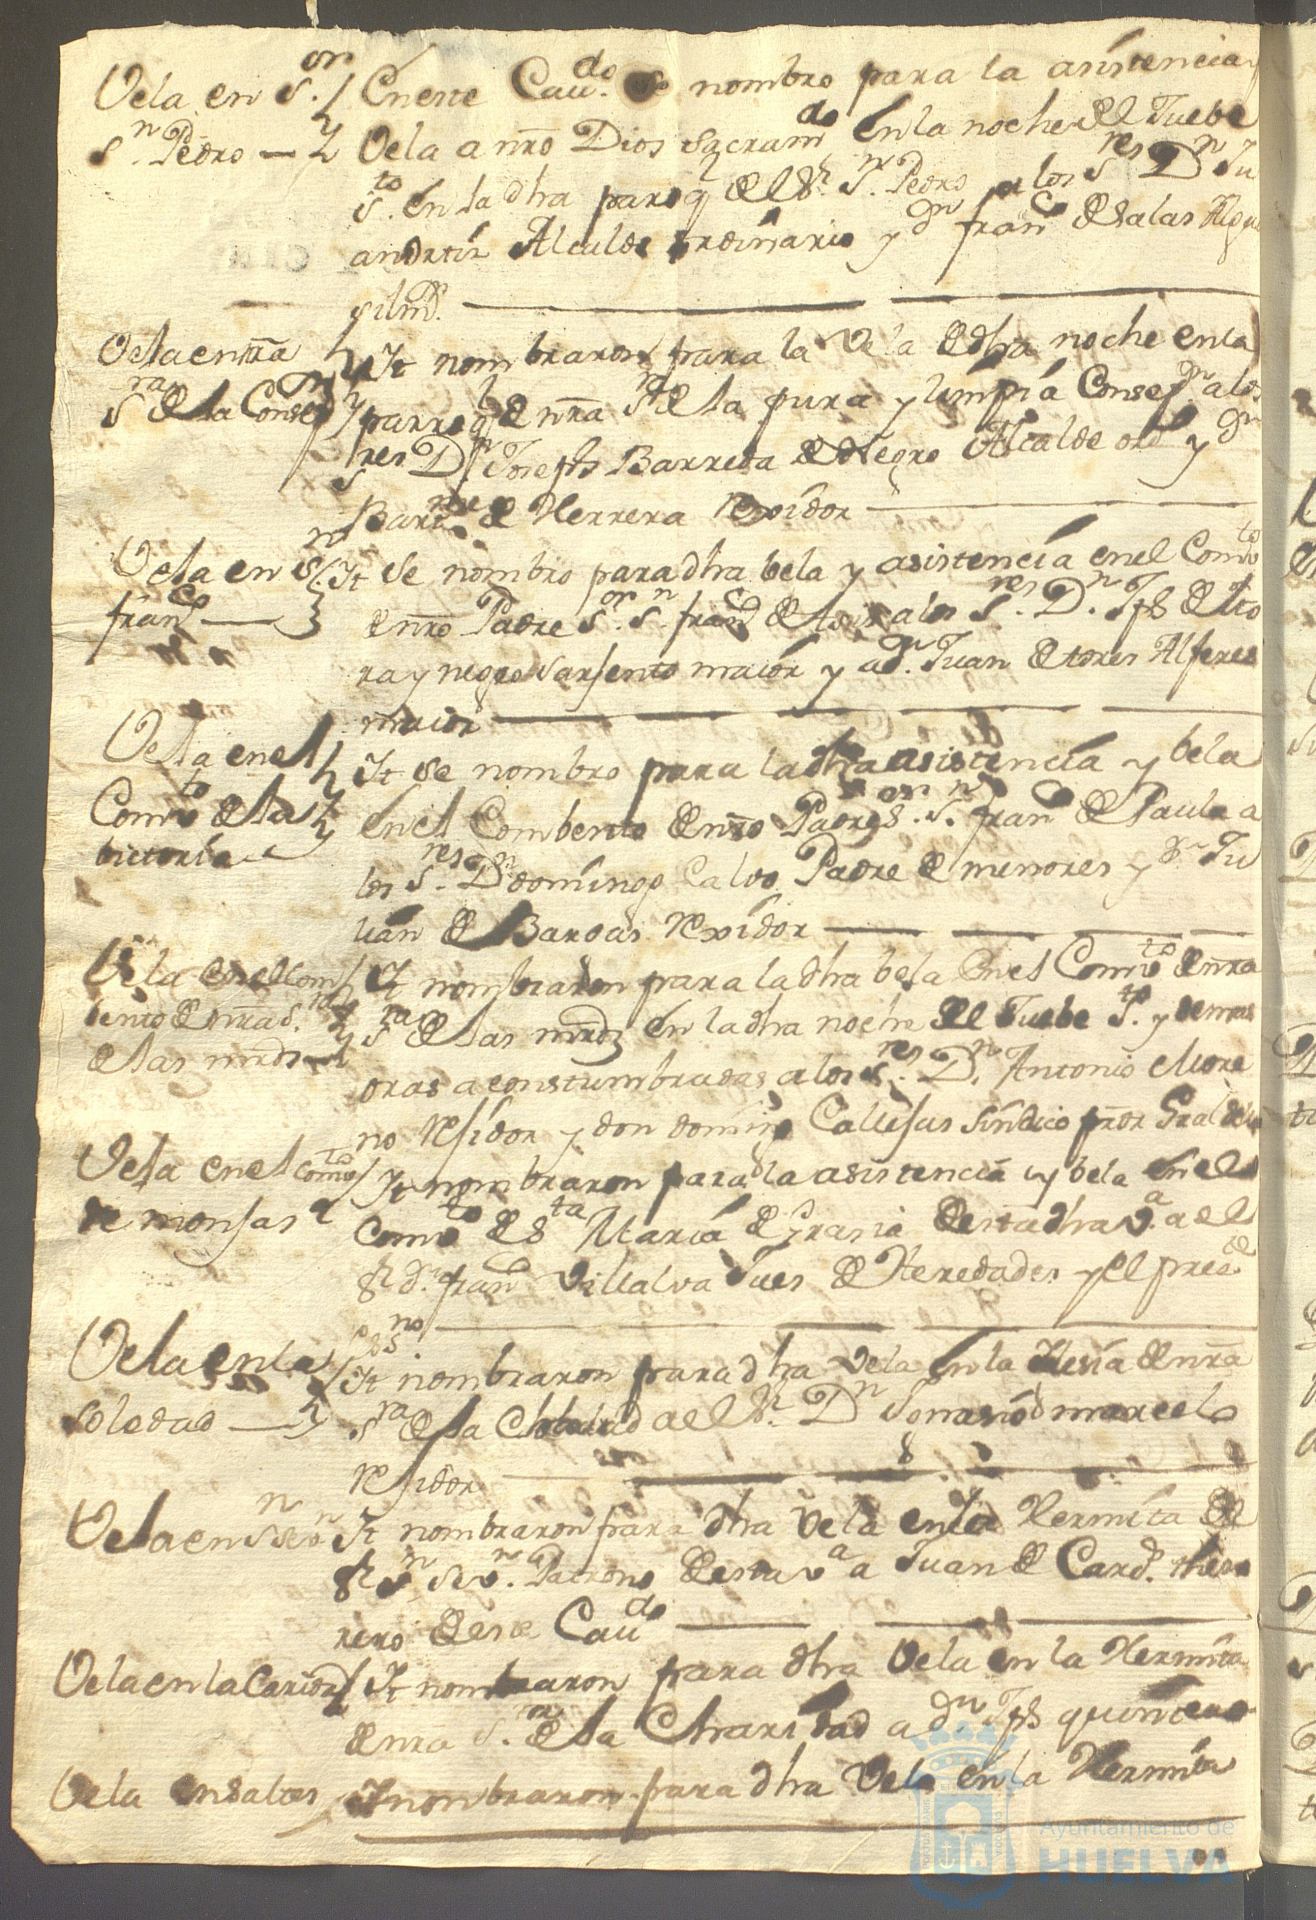 Vela en S.or
S.n Pedro
En este Cau.do se nombro para la asistencia y
Vela a nro Dios sacramdo en la noche del Juebe
S.to en la dha paroq.l del S.r S.n Pedro a los S.res D.n Ju
an Alcalde ordinario y d.n fran.co de Salas Algua
sil m.or
Vela en nra
S.ra de la Consep.n
It nombraron para la Vela de dha noche en la
parroq.l de nra S.ra de la pura y limpia Consep.n a los
S.res D.n Joseph Barreda de Negro Alcalde ord.o y d.n
Bar.me de Herrera Rexidor
Vela en S.n
fran.co
It Se nombro para dha bela y asistencia en el Comv.to
de nro Padre S.or S.n fran.co de Asis a los S.res D.n Jph de
ra y negro Sarjento maior y a d.n Juan de tores Alferes
maior
Vela en el
Comv.to de la
bictoria
It se nombro para la dha asistencia y bela
en el Combento de nro Padre S.or S.n fran.co de Paula a
los S.res D.n domingo Calvo Padre de menores y d.n Ju
uan de Bargas Rexidor
Vela en el Com
bento de nra S.ra
de las mrds
It nombraron para la dha bela en el Comv.to de nra
S.ra de las mrdz en la dha noche del Juebe S.to y demas
oras aconstumbradas a los S.res D.n Antonio More
no Residor y don doming Callejas Sindico pror Gral
Vela en el Comv.to
de monjas
It nombraron para la asistencia y bela en el
Comv.to de S.ta Maria de Grasia de esta dha v.a a el
S.r d.n fran.co Villalva Jues de Heredades y el pres.te
es.no
Vela en la
Soledad
It nombraron para dha Vela en la Ilesia de nra
S.ra de la Soledad a el S.r D.n Ignasio marcelo
Residor
Vela en S.n Seb.n
It nombraron para dha Vela en la Hermita de
S.r S.n Seb.n Patrono de esta v.a a Juan de Card.s theso
rero de este Cau.do
Vela en la Caridad
It nombraron para dha Vela en la Hermita
de nra S.ra de la Charidad a d.n Jph quintero
Vela en Saltes
It nombraron para dha Vela en la Hermita
Ayuntamiento de
HUELVA